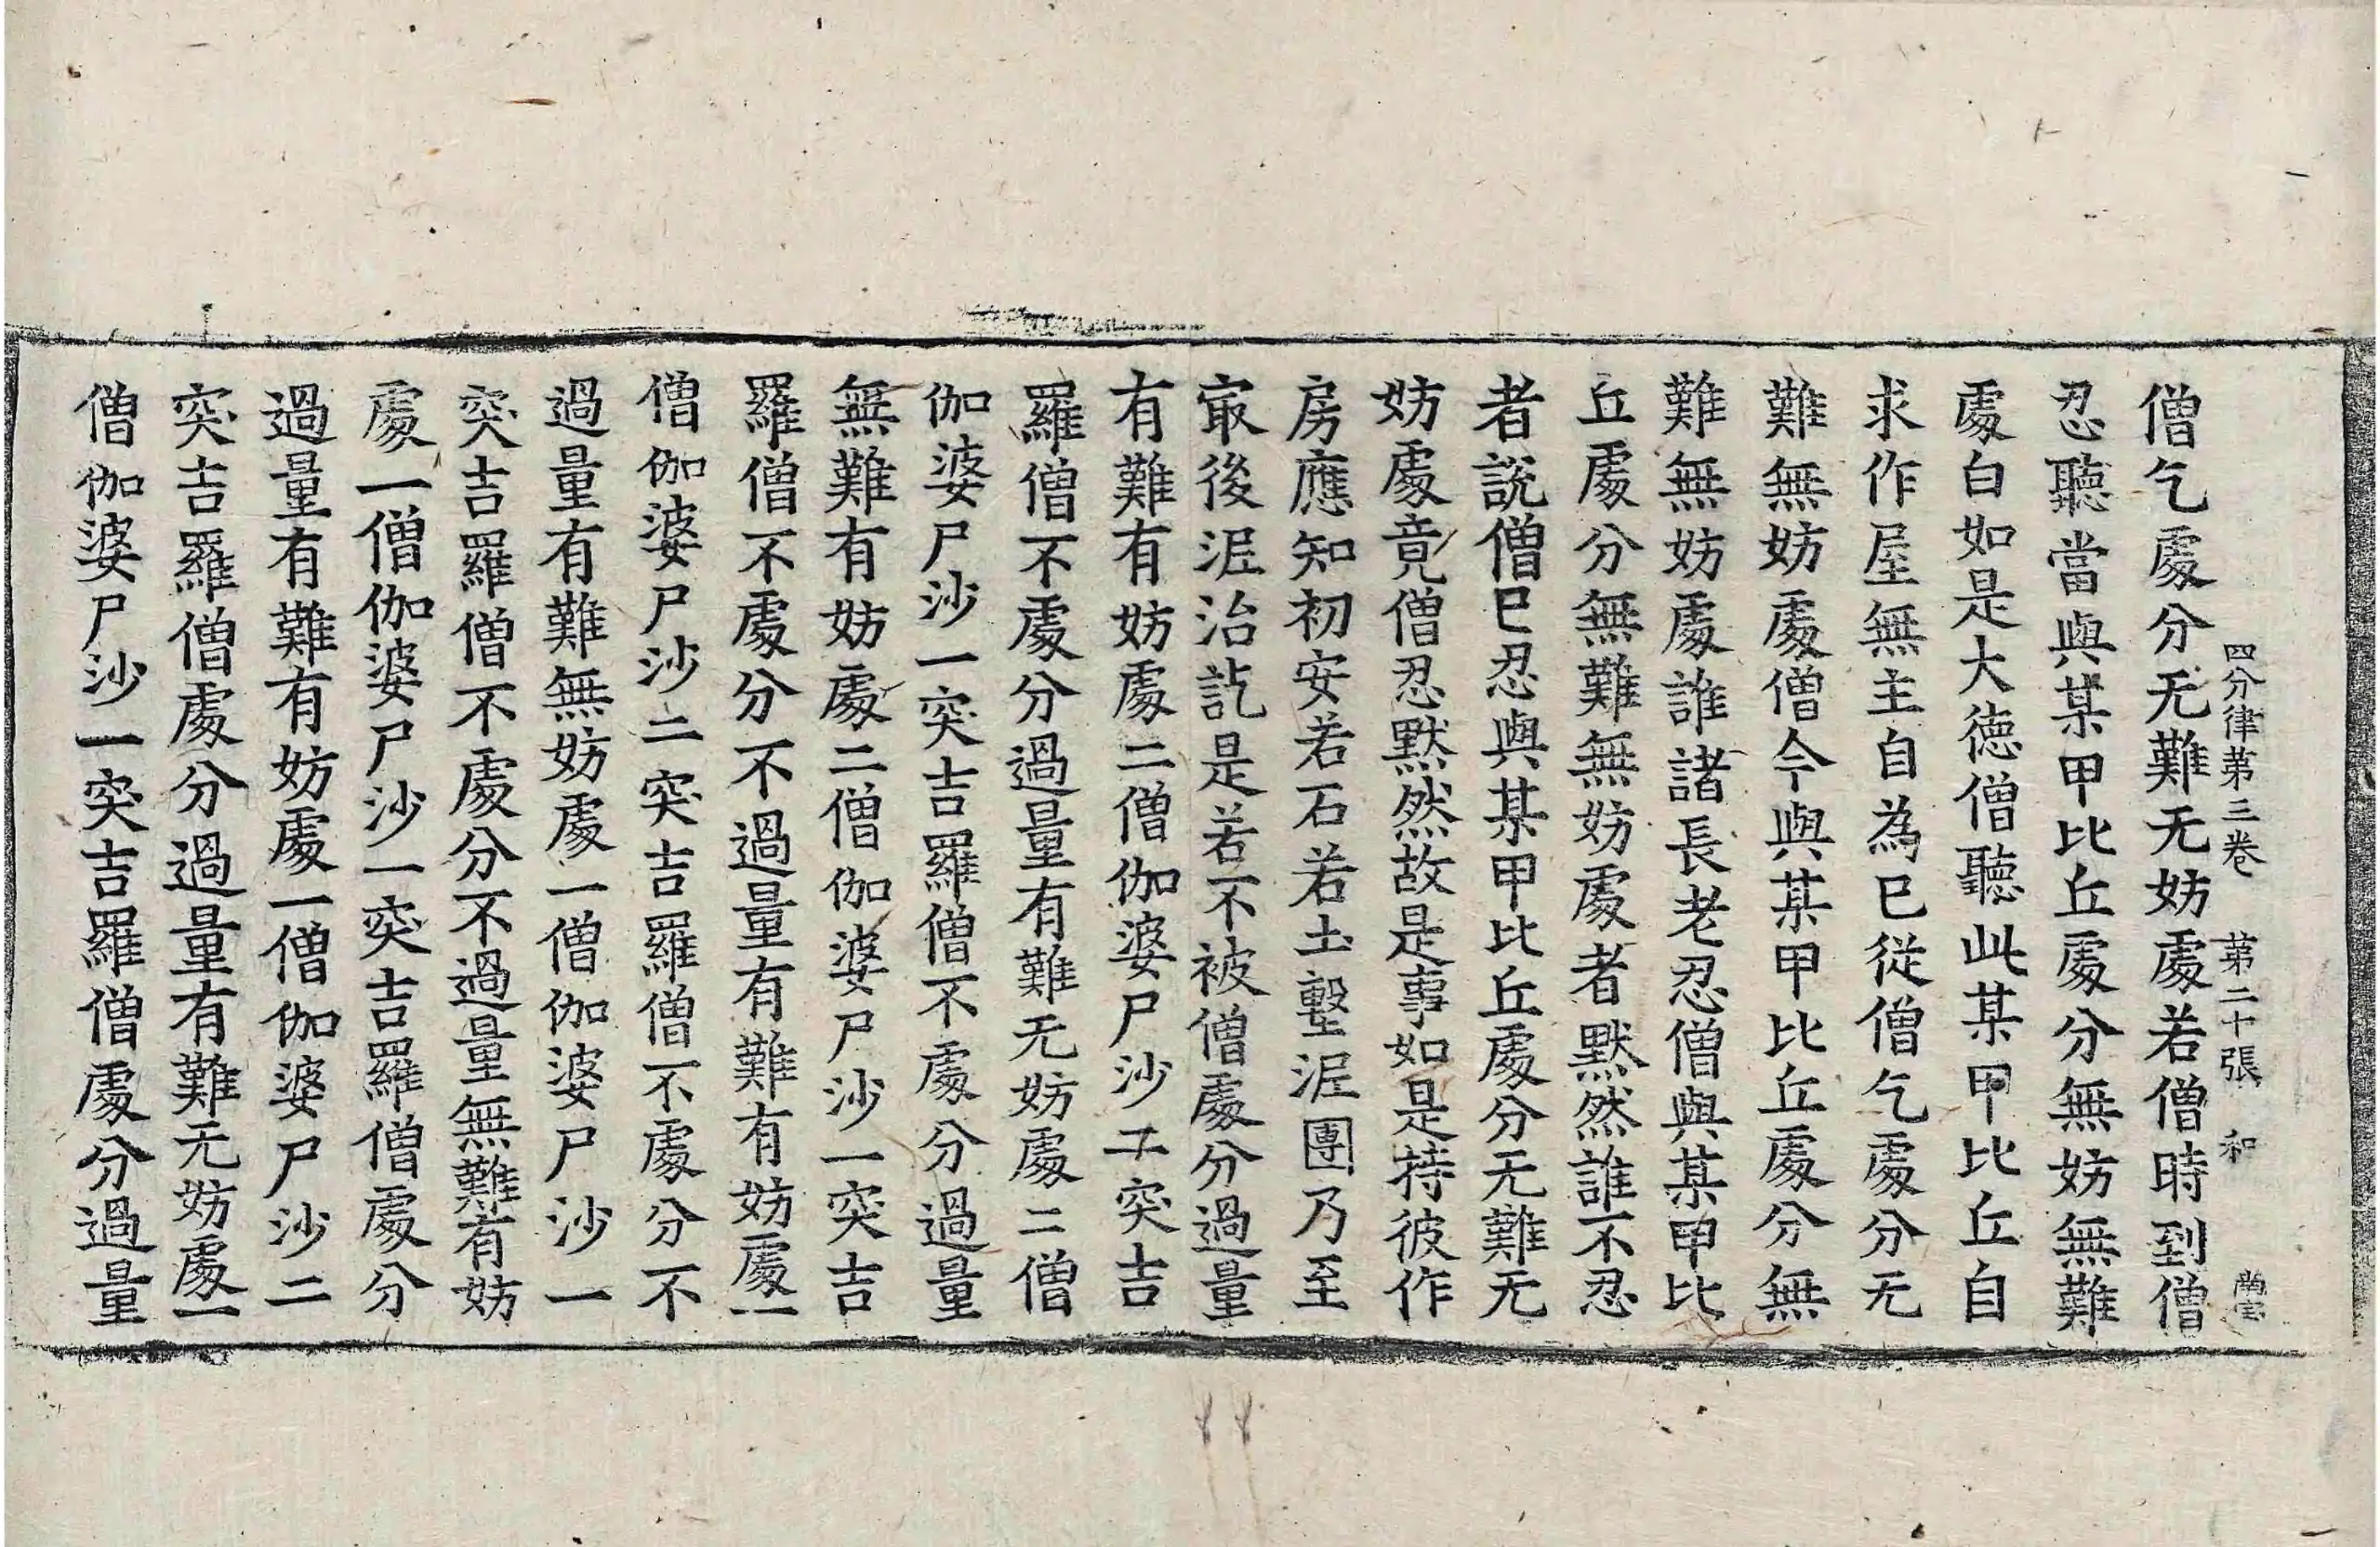 四分律第三卷　第二十張　和
僧乞處分无難无妨處若僧時到僧
忍聽當與某甲比丘處分無妨無難
處白如是大德僧聽此某甲比丘自
求作屋無主自為已從僧乞處分无
難無妨處僧今與某甲比丘處分無
難無妨處誰諸長老忍僧與某甲比
丘處分無難無妨處者默然誰不忍
者說僧已忍與某甲比丘處分无難无
妨處竟僧忍默然故是事如是持彼作
房應知初安若石若土墼泥團乃至
㝡後泥治訖是若不被僧處分過量
有難有妨處二僧伽婆尸沙二突吉
羅僧不處分過量有難无妨處二僧
伽婆尸沙一突吉羅僧不處分過量
無難有妨處二僧伽婆尸沙一突吉
羅僧不處分不過量有難有妨處一
僧伽婆尸沙二突吉羅僧不處分不
過量有難無妨處一僧伽婆尸沙一
突吉羅僧不處分不過量無難有妨
處一僧伽婆尸沙一突吉羅僧處分
過量有難有妨處一僧伽婆尸沙二
突吉羅僧處分過量有難无妨處一
僧伽婆尸沙一突吉羅僧處分過量